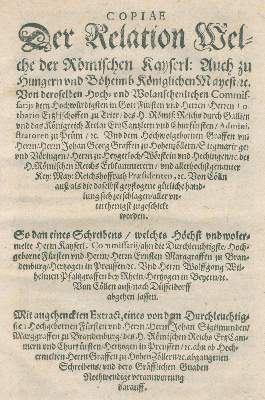 COPIAE
Der Relation Wel-
che der Römischen Kayserl: Auch zu
Hungern und Böheimb Königlichen Mayest: ꝛc.
Von deroselben Hoch- und Wolansehenlichen Commiss-
sarijs dem Hochwürdigsten in Gott Fürsten und Herren Herren Lo-
thario Ertzbischoffen zu Trier/ des H. Römis. Reichs durch Gallien
und das Königreich Arelat ErtzCantzlern und Churfürsten/ Admini-
stratoren zu Prüm/ ꝛc. Und dem Hochwolgebornen Graffen und
Herrn/ Herrn Johan Georg Graffen zu Hohenzöllern/ Sigmaringen
und Vöringen/ Herrn zu Heygerloch Wörstein und Hechingen/ ꝛc. des
H. Römischen Reichs Erbkämmerern/ und allerhöchstgemelter
Key: May: Reichshoffraths Præsidenten/ ꝛc. Von Cölln
auß als die daselbst gepflogene gütliche hand-
lung sich zerschlagen/ aller un-
terthenigst zugeschickt
worden.
So dan eines Schreibens / welches Höchst und woler-
melte Herrn Kayserl. Commissarij/ ahn die Durchleuchtigste/ Hoch-
geborne Fürsten und Herrn/ Herrn Ernsten Marggraffen zu Bran-
denburg/ Hertzogen in Preussen/ ꝛc. Und Herrn Wolffgang Wil-
helmen Pfaltzgraffen bey Rhein/ Hertzogen in Beyern/ ꝛc.
Von Cölln auß/ nach Düsseldorff
abgehen lassen.
Mit angehencktem Extract, eines von dem Durchleuchtig-
sten/ Hochgebornen Fürsten und Herrn/ Herrn Johan Sigismunden/
Marggraffen zu Brandenburg/ des H. Römischen Reichs ErtzCäm-
merern und Churfürsten/ Hertzogen in Preussen/ ꝛc. ahn ob Hoch-
ermelten Herrn Graffen zu Hohen-Zöllern/ ꝛc. abgangenen
Schreibens/ und dero Gräfflichen Gnaden
Nothwendige verantwortung
darauff.